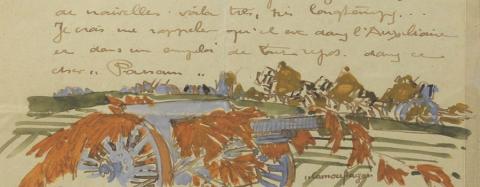 de nouvelles voilà très, très longtemps...
Je crois me rappeler qu'il est dans l'Auxiliaire
et dans un emploi de tout repos. dans ce
cher "Parsam"
camouflage